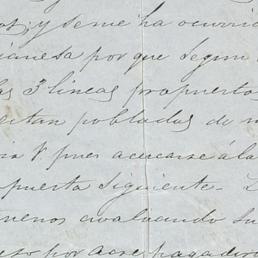 os, y se me ha ocurrid
ianesa por que segun
las 3 lineas propuesta
ectan pobladas de m
V. pues acercarse á la
puesta siguiente. L
menos avaluando su
eso por acre pagadero